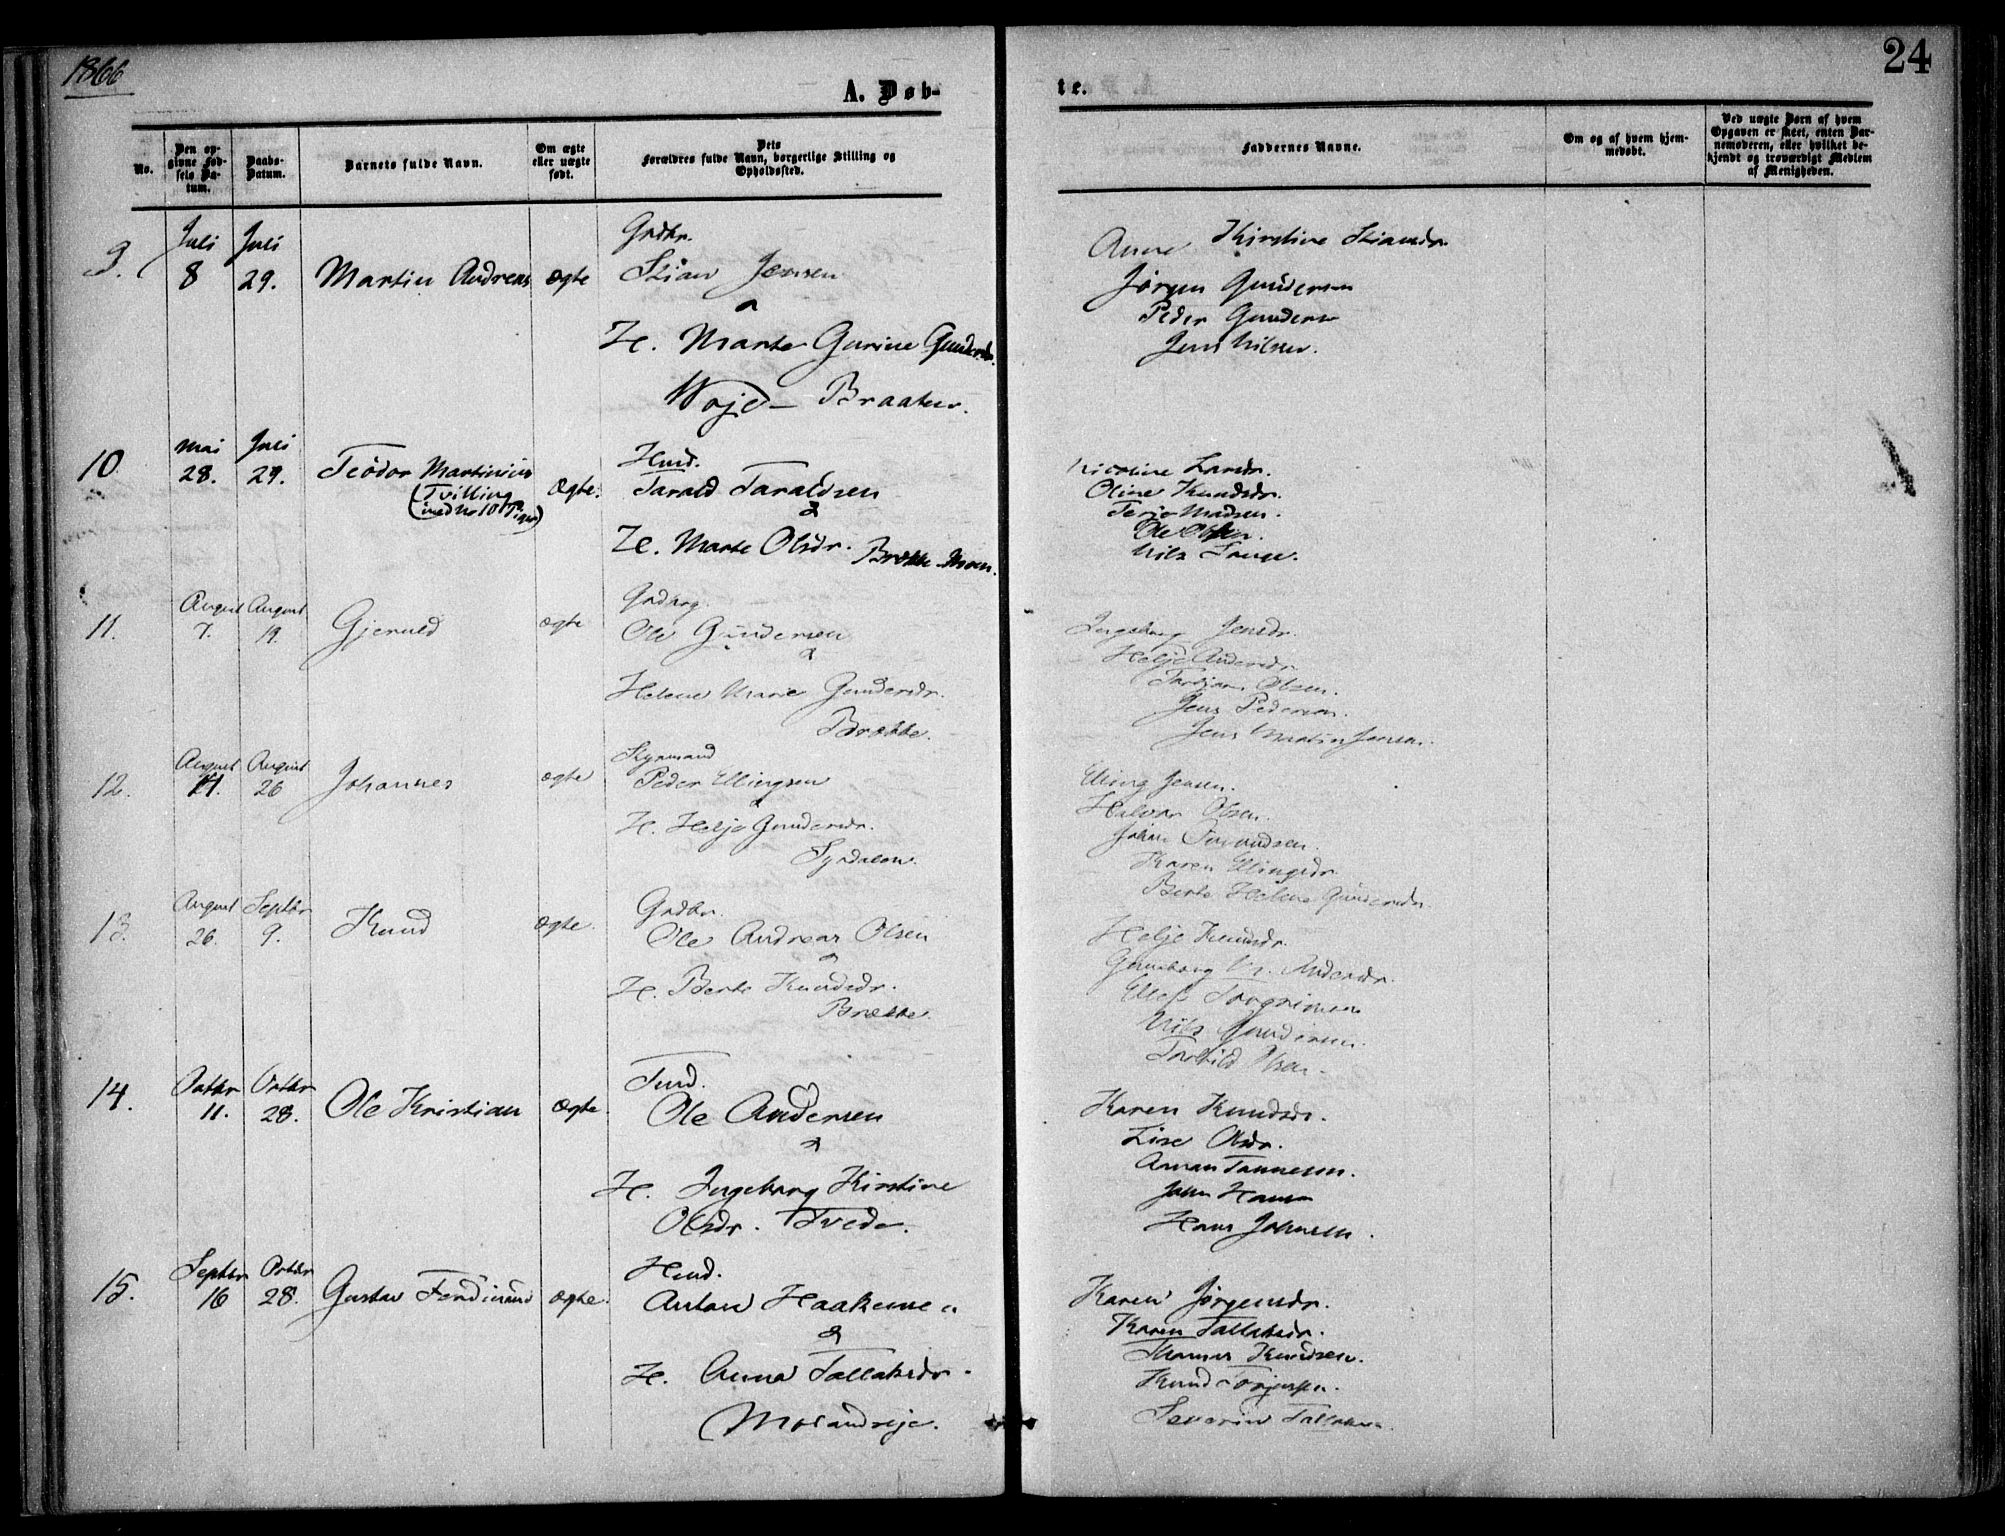 1866
24
A. Døb-
te.
No.
Den op-
givne Fød-
sels Da-
tum.
Daabs-
Datum.
Barnets fulde Navn.
Om ægte
eller uægte
født.
Dets
Forældres fulde Navn, borgerlige Stilling og
Opholdssted.
Faddernes Navne.
Om og af hvem hjem-
medøbt.
Ved uægte Børn af hvem
Opgaven er skeet, enten Bar-
nemoderen, eller hvilket be-
kjendt og troværdigt Medlem
af Menigheden.
9.
Juli
8
Juli
29.
Martin Andreas
ægte
Grdbr.
Stian Jensen
&
H. Marte Gurine Gundersdr.
Braaten.
Anne Kirstine Stiansdr.
Jørgen Gundersen
Peder Gunders
Jens Nilsen.
10
Mai
28.
Juli
29.
Teodor Martinius
(Tvilling
med No 10 Piger)
Ægte.
Husd.
Tarald Taraldsen
&
H. Marte Olsdr.
Brække-Moen.
Nicoline Larsdr.
Oline Knudsdr.
Terje Madsen.
Ole Olsen.
Nils
11.
August
7.
August
19.
Gjeruld
ægte
Ole Gundersen
&
Helene Marie Gundersdr.
Brække.
Ingeborg Jensdr.
Helje Andersdr.
Olsen.
Jens Pedersen.
Jens Martin Jensen.
12.
August
August
26
Johannes
ægte
Styrmand
Peder Ellingsen
&
H. Helje Gundersdr.
Syrdalen.
Elling Jensen.
Halvor Olsen.
Johan
Karen Ellingsdr.
Berte Helene Gundersdr.
13.
August
26.
Septbr
9.
Knud
ægte.
Grdbr.
Ole Andreas Olsen
&
H. Berte Knudsdr.
Brække.
Helje Knudsdr.
Gunborg Andersdr.
Ellef Torgrimsen
Nils Gundersen.
Torkild Olsen.
14.
Octbr
11.
Octbr
28.
Ole Kristian
Ægte.
Ole Andersen
&
H. Ingeborg Kirstine
Olsdr. Tvede.
Karen Knudsdr.
Lise Olsdr.
Tønnesen.
John Hansen
Hans Johnsen.
15.
Septbr
16
Octbr
28.
Gustav Ferdinand
ægte.
Husd.
Anton Haakensen
&
H. Anna Tallaksdr.
Molandseje.
Karen Jørgensdr.
Karen Tallaksdr.
Thomas Knudsen.
Knud Torjusen.
Severin Tallaksen